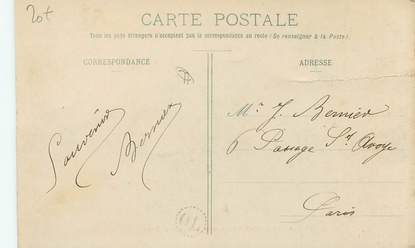 20t
CARTE POSTALE
Tous les pays étrangers n'acceptent pas la correspondance au recto (Se renseigner à la Poste).
CORRESPONDANCE
ADRESSE
Souvenir
Bernier
Mr J. Bernier
6 Passage St Avoye
Paris